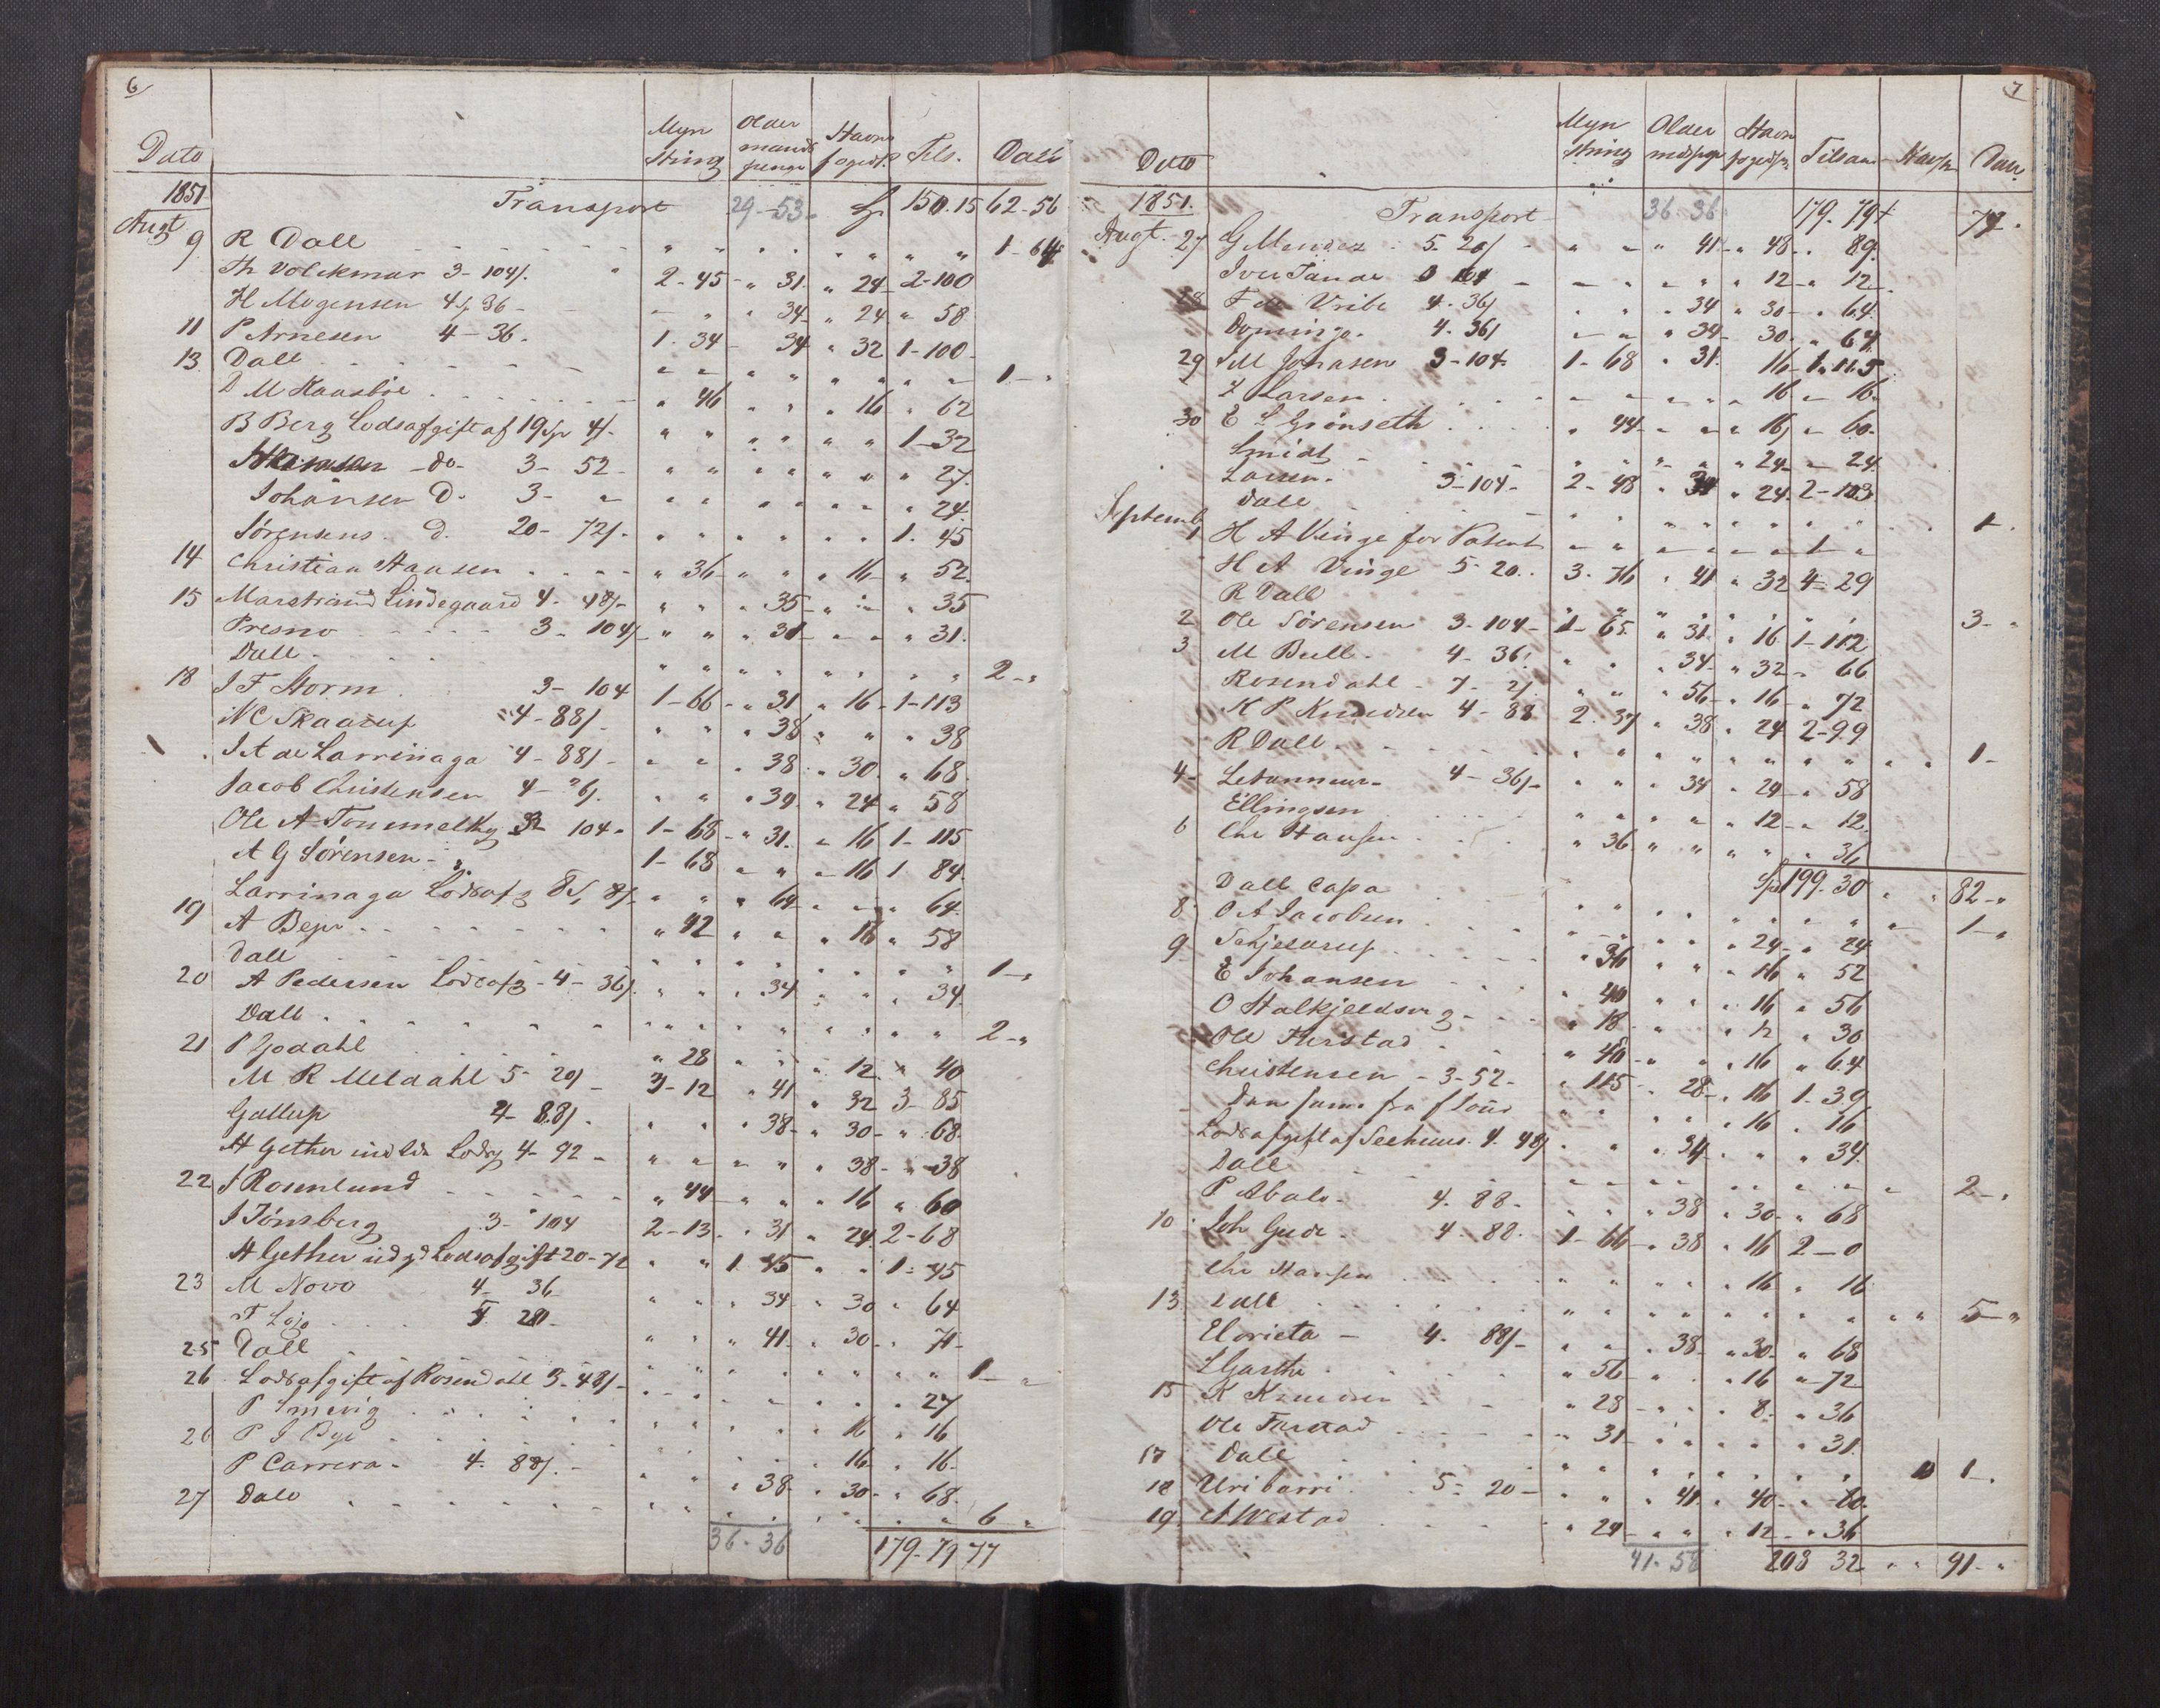 6
Dato Myn string Older mands penge Havne fogedp Tils. Dall
1851 Transport 29-53 150.15 62-56
Augt 9 R Dall " " " " " " " 1-64
Th Volckmar 3-104/. 2-45 " 31 " 24 2-100
H Mogensen 4/ 36 - " " 34 " 24 " 58
11 P Arnesen 4-36. 1.34 34 " 32 1-100
13 Dall " " " " " " " 1 "
D M Kaasböe " 46 " " " 16 " 62
B Berg Lodsafgift af 19 4/- " " " " " " 1-32
do 3-52- " " " " " " " 27.
Johansen D. 3- " " " " " " " " 24
Sörensens D. 20-72/. " " " " " " 1.45
14 Christian Hansen " 36 " " " 16 " 52.
15 Marstrand Lindegaard 4. 48/- " " " 35 " " " 35
Presno 3-104/ " " " 31 " " " 31.
Dall " " " " " " " 2-"
18 J F Storm 3-104 1-66 " 31 " 16 1-113
N C Skaarup 4-88/- " " " 38 " " " 38
J A de Larrinaga 4-88/- " " " 38 " 30 " 68.
Jacob Christensen 4-36/. " " " 39. " 24 " 58
Ole A 104- 1-68 " 31. " 16 1-115
A G Sörensen - 1-68 " " " 16 1 84.
Larrinaga Lodsafg 8/ " " " 64 " " " 64.
19 A Bejer " 42 " " " 16 " 58
Dall " " " " " " " 1-"
20 A Pedersen Lodsafg - 4-36/. " " " 34 " " " 34
Dall " " " " " " " 2-"
21 P Godahl " 28 " " " 12 " 40
M R Meldahl 5-20/- 3-12 " 41 " 32 3-85
Gallup 4-88/. " " " 38- " 30- " 68.
H Gether Lodsg 4-92- " " " " " 38- " 38
22 J Rosenlund " 44 " " " 16 " 60
J Tönsberg 3-104 2-13. " 31 " 24 2-68
H Gether Lodsafgift 20-72 " " 1 45 " " 1-45
23 M Novo 4-36 " " " 34 " 30 " 64
F Lojo 5 20- " " " 41. " 30 " 71-
25 Dall " " " " " " " 1-"
26 Lodsafgift af Rosendall 3-48/- " " " " " " " 27
P Smevig " " " " " 16 " 16
26 P J Bye " " " " " 16. " 16-
P Carrera- 4.88/.- " " " 38. " 30- " 68.
27 Dall " " " " " " " 6 "
36-36 179-79 77
7
Dato Myn string Older mdspge Havn fogedp Tilsam Havn Dall
1851. Transport 36.36 179.79 77.
Augt. 27 G Mendez. 5.20/- " " " 41 " 48 " 89.
Iver " " " " " 12 " 12.
28 F de Uribe 4.36/ " " " 34 " 30- " 64
Domingo. 4.36/ " " " 34- 30- " 64
29 J M Jonasen 3-104- 1-68 " 31. 16 1"115
Z Larsen. " " " " " 16 " 16.
30 E L Grönseth " 44 " " " 16 " 60.
Smidt - " " " " " 24- " 24
Larsen. 3-104- 2-48 " 31 " 24 2-103
Dall " " " " " " " 1-
Septemb 1 H A Vinge for Patent " " " " " " 1 "
H A Vinge 5-20. 3.76 " 41 " 32 4-29
R Dall " " " " " " " 3-"
2 Ole Sörensen 3-104- 1-65. " 31. " 16 1-112
3 M Bull. 4-36. " " " 34- " 32 " 66
Rosendahl - 7-2/. " " " 56- " 16 " 72
K P Knudsen 4-88 2.37 " 38 " 24 2-99
R Dall. " " " " " " " 1-
4- 4-36/- " " " 34 " 24 " 58
Ellingsen " " " " " 12 " 12
6 Chr Hansen " 36 " " " " " 36
199.30 82-"
Dall Capa " " " " " " " 1-"
8 O A Jacobsen " " " " " 24 " 24
9 " 36 " " " 16 " 52
E Johansen " 40 " " " 16 " 56
O " 18 " " " 12 " 30
Ole " 48 " " " 16 " 64
Christensen - 3-52- " 115 " 28- " 16 1-39
" " " " " 16 " 16
Lodsafgift af Seehuus. 4.48/. " " " 34 " " " 34.
Dall " " " " " " " 2-"
P Abalo- 4.88- " " " 38 " 30- " 68
10 Joh Gude. 4.88. 1-66 " 38 " 16 2-0
Chr Hansen " " " " " 16 " 16
13 Dall " " " " " " " 5-"
Elorieta - 4.88/- " " " 38- " 30- " 68
L Garthe " 56 " " " 16 " 72
15 K Knudsen " 28 " " " 8- " 36
Ole " 31 " " " " " 31.
17 Dall " " " " " " " 1-"
18 Uribarri. 5-20- " " " 41. " 40- "
19 A Westad " 24 " " " 12 " 36
41-58 208 32 91-"